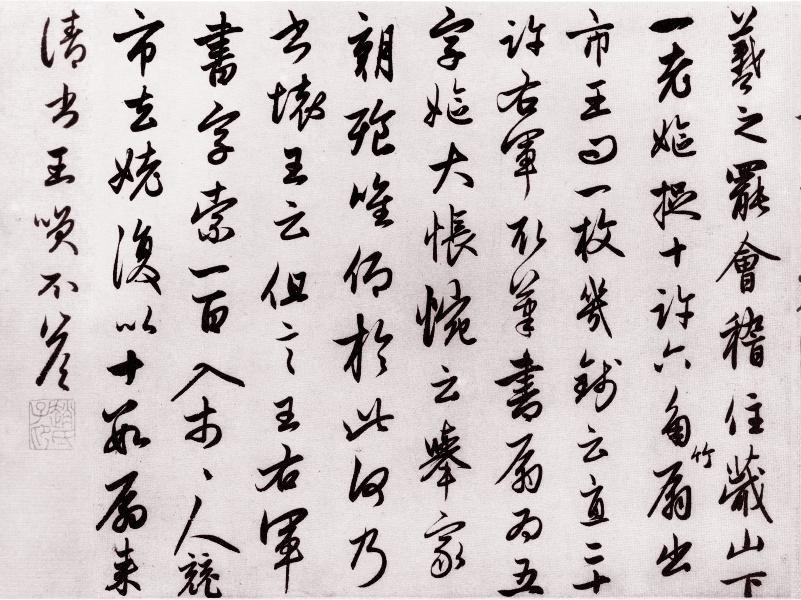 羲之罷會稽住蕺山下
一老嫗捉十許六角竹扇出
市王問一枚幾錢云直二十
許右軍取筆書扇扇為五
字嫗大悵惋云舉家
朝飱唯仰於此何乃
書壞王云但言王右軍
書字索一百入市市人競
市去姥復以十數扇來
請書王笑不答